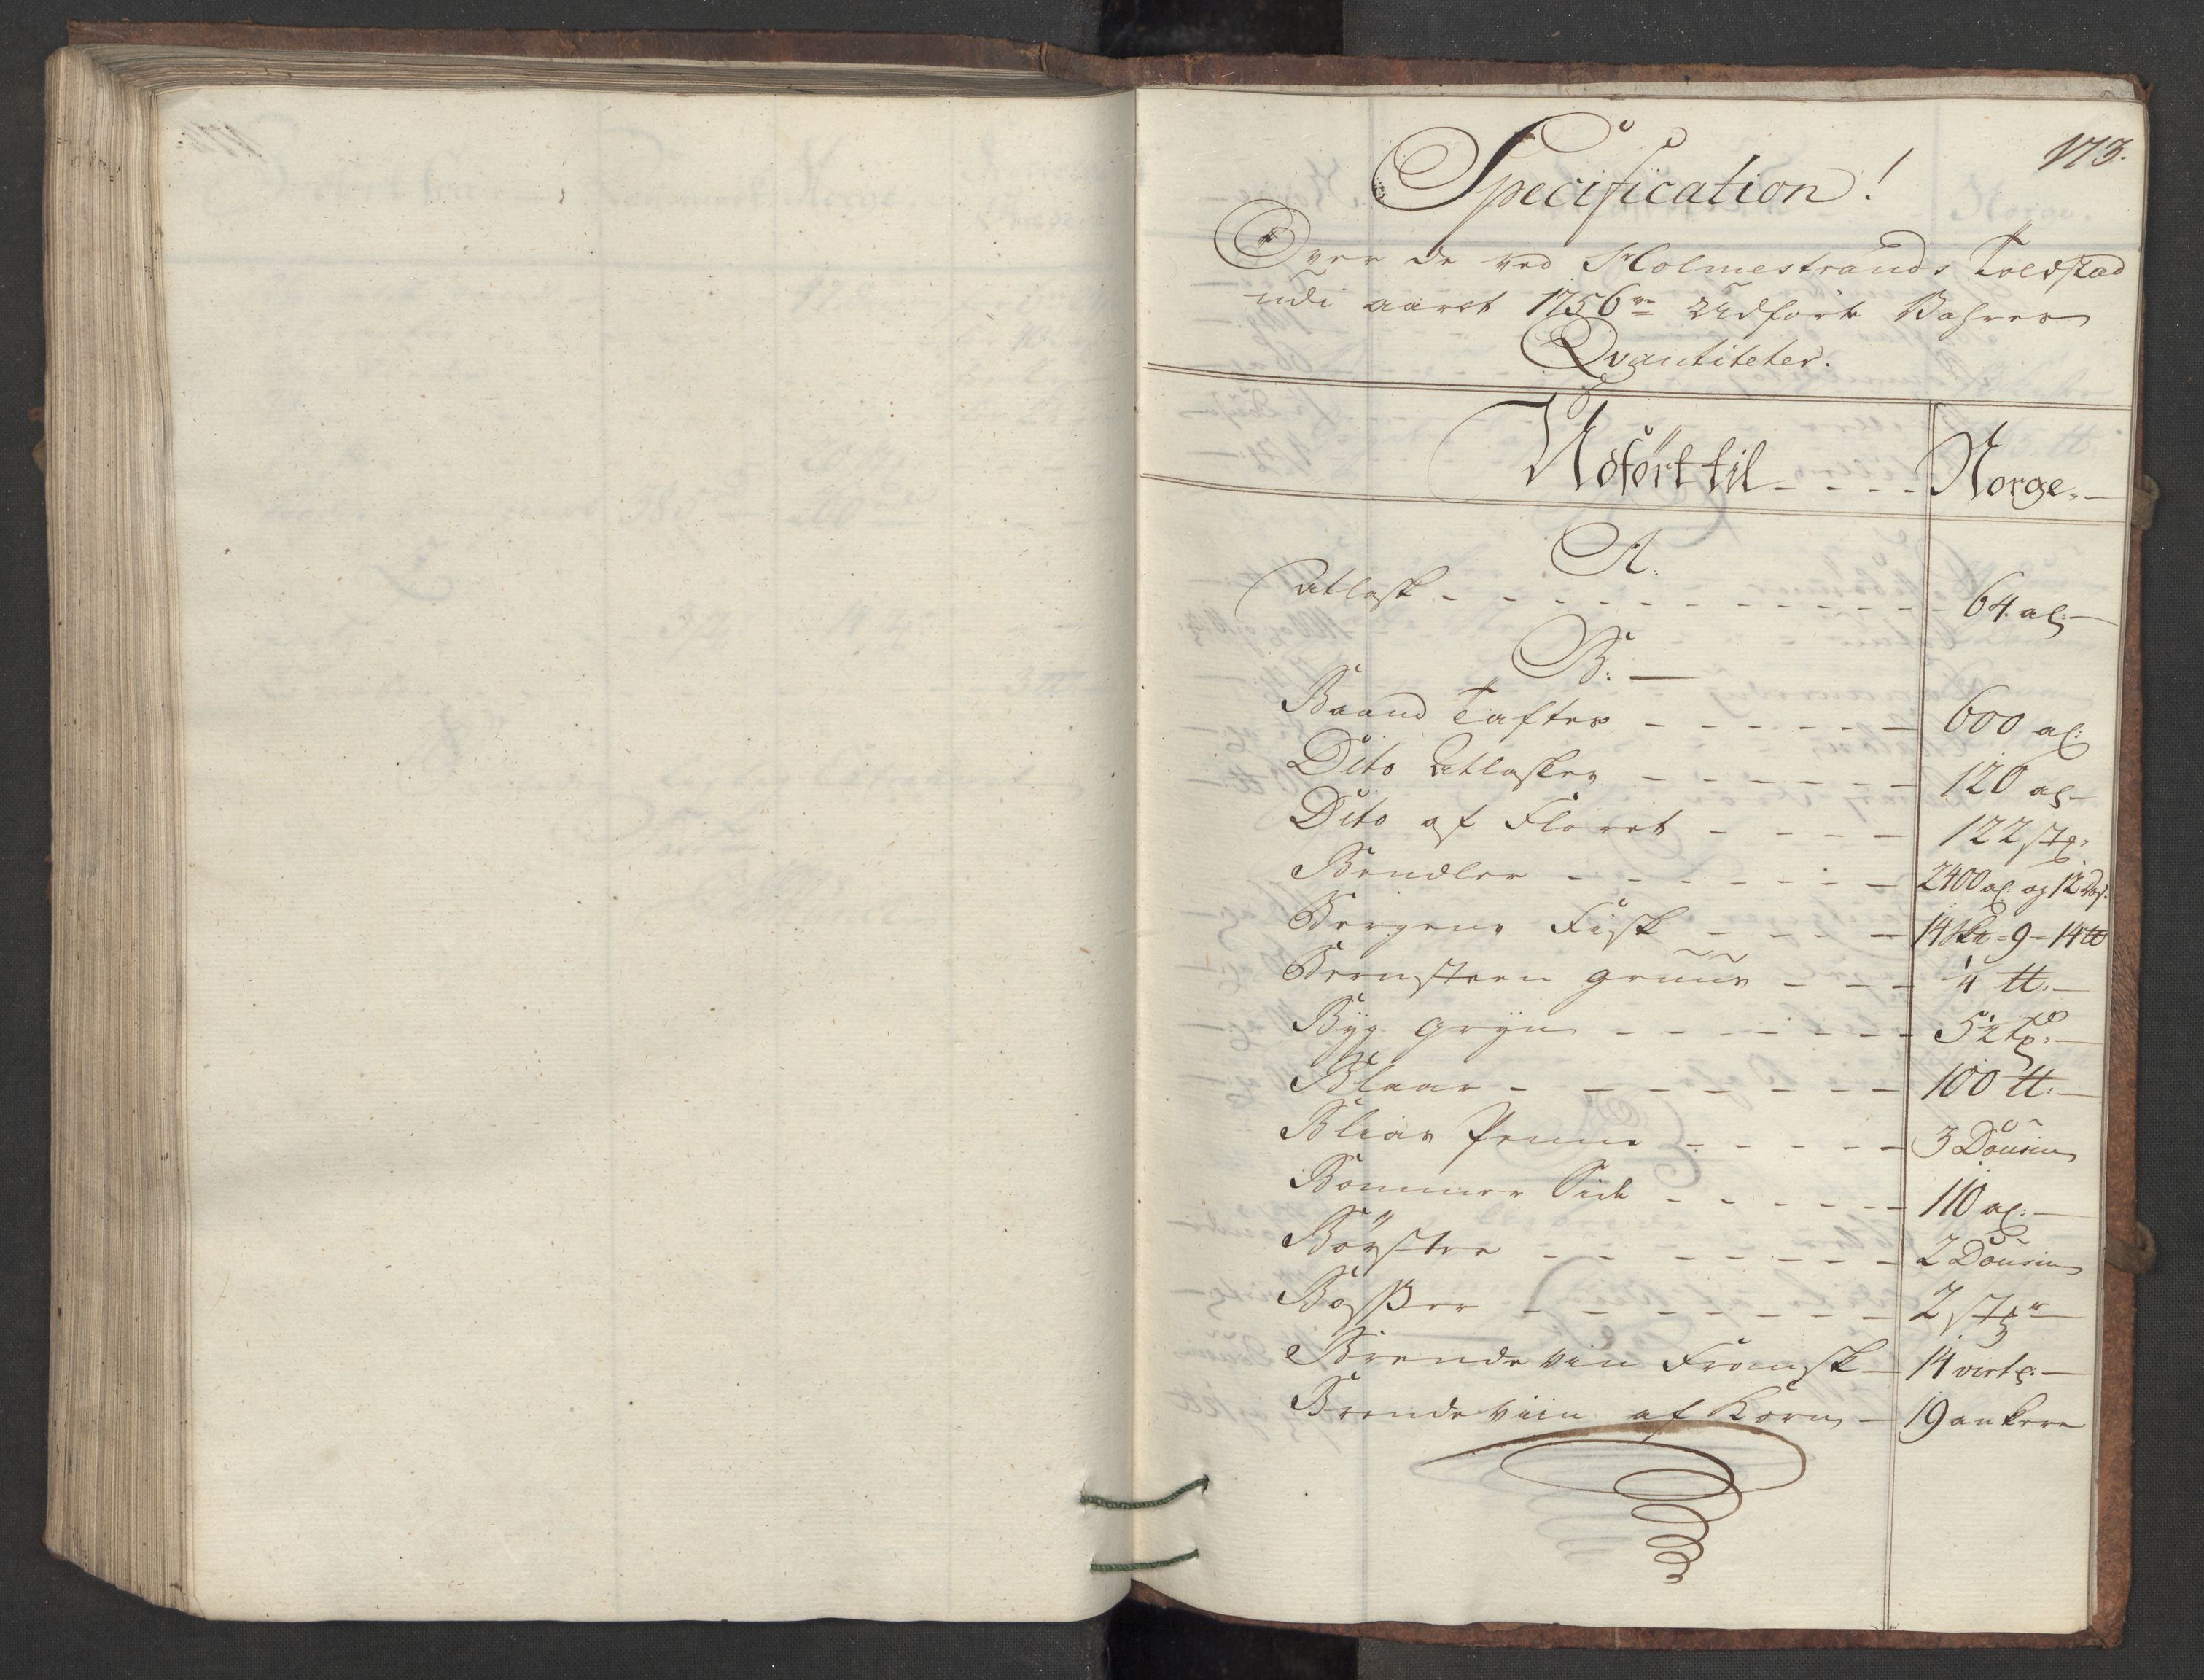 173.
Specification!
Over de ved Holmestrands Toldsted
udi aaret 1756 Udförte Vahrers
Qvantiteter.
Udfört til - - - - Norge.
A.
Atlask - - - - 64. al:
B:
Baand Tafter - - - - 600 al:
Dito Atlasker - - - - 120 al
Dito af Floret - - - - 122 st:
Bendler - - - - 2400 al: og 12
Bergens Fisk - - - - 14 - 9 - 14 ℔
Bernsteen gruus - - - 4 ℔:
Byg gryn - - - -
Blaar - - - - 100 ℔:
Bliae Penne - - - - 3 Dousin
Bommer Side - - - - 110 al:
Börster - - - - 2 Dousin
- - - - 2 st:
Brende Vin Fransk - 14
Brende Viin af Korn - 19 ankere